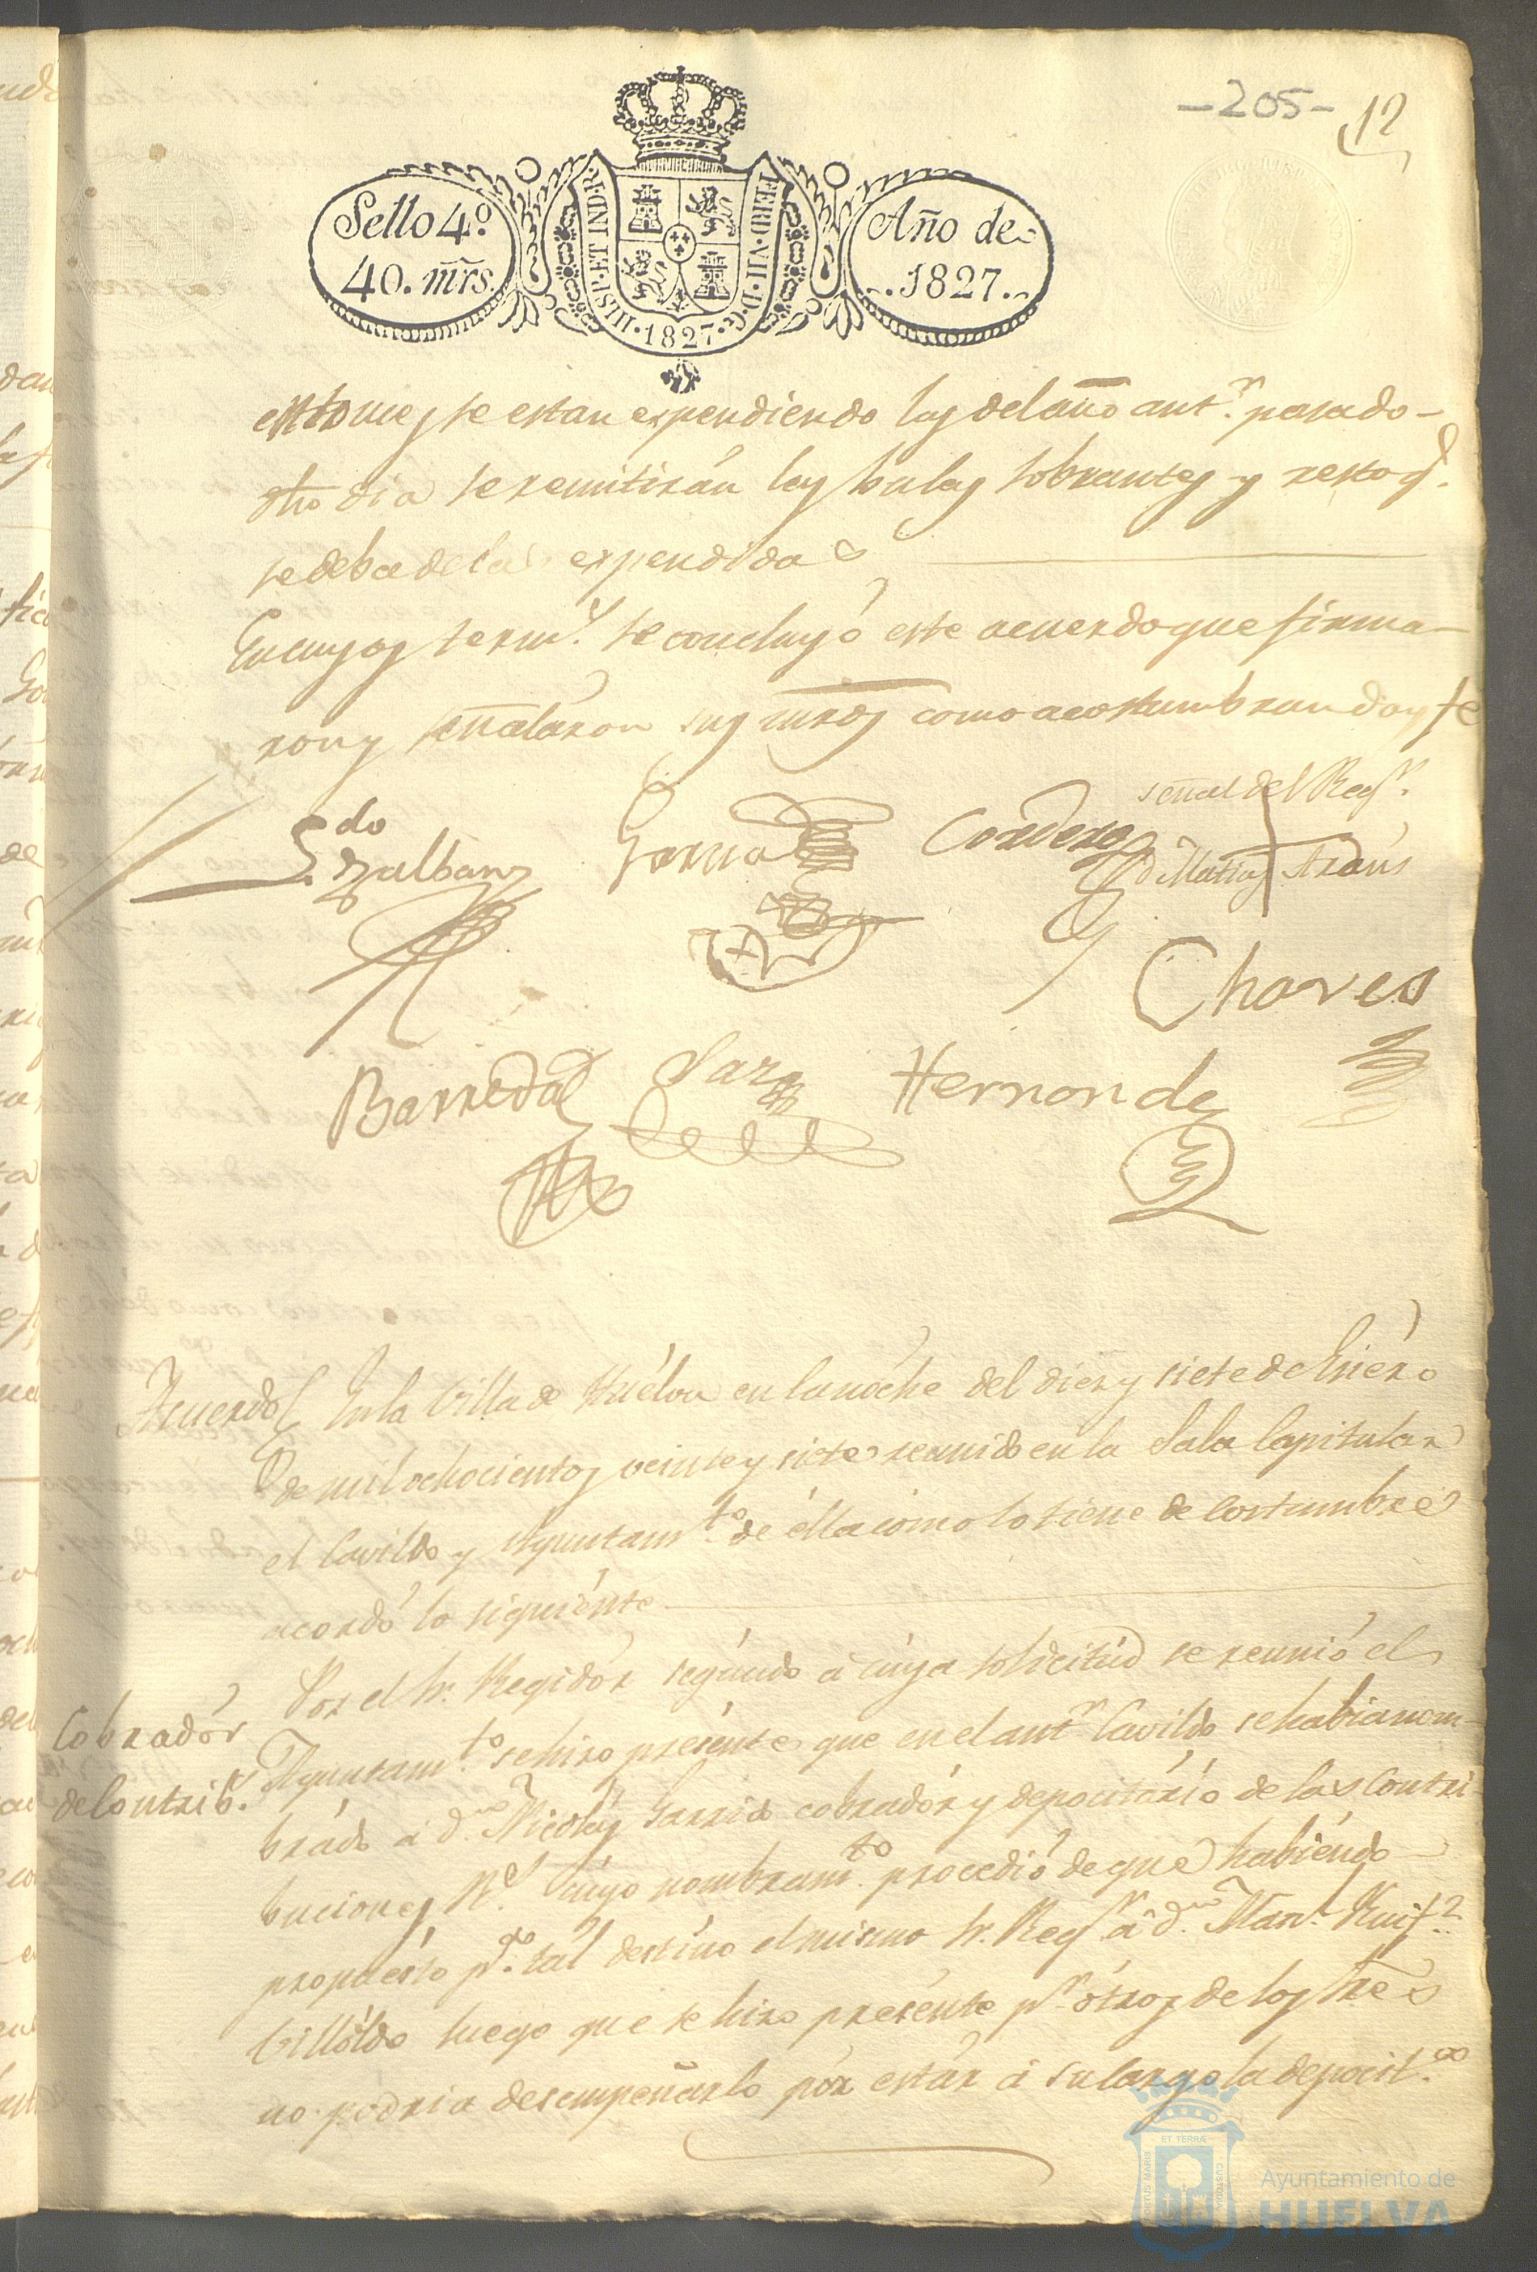 -205-
12
Sello 4º
40. mrs.
HISP. ET IND. R.
FERD. VII. D. G.
1827
Año de
1827.
entonces se estan expendiendo las del año antr. pasado
dho dia se remitirán las bulas sobrantes y resto q.
se deba de las expendidas
En cuyos term.s se concluyó este acuerdo que firma-
ron y señalaron sus mrds como acostumbran doy fe
señal del Regr.
Ldo
Garcia
Cordero
d. Matias Araus
Chaves
Barreda
Saez
Hernandez
Acuerdo En la Villa de Huélva en la nóche del diez y siete de Enéro
de mil ochocientos veinte y siete reunido en la Sala Capitular
el Cavildo y Ayuntamto. de élla como lo tiene de costumbre
acordó lo siguiénte
Por el Sr. Regidór segúndo á cúya solicitúd se reunió el
Cobradór
Ayuntamto. se hizo presénte que en el antr. Cavildo se habia nom-
de Contrib.s
brádo á dn. Nicolás Garrido cobradór y depocitário de las Contri-
buciones Rs. Cúyo nombramto. procedió de que habiéndo
propuésto pa. tál destíno el mismo Sr. Regr. á dn. Manl. Ruifz.
Villóldo luego que se hizo presénte pr. ótros de los Sres
no podria desempeñarlo pór estár á su largo la deposit.
ET TERRÆ
CUSTODIA
PORTUS MARIS
Ayuntamiento de
HUELVA